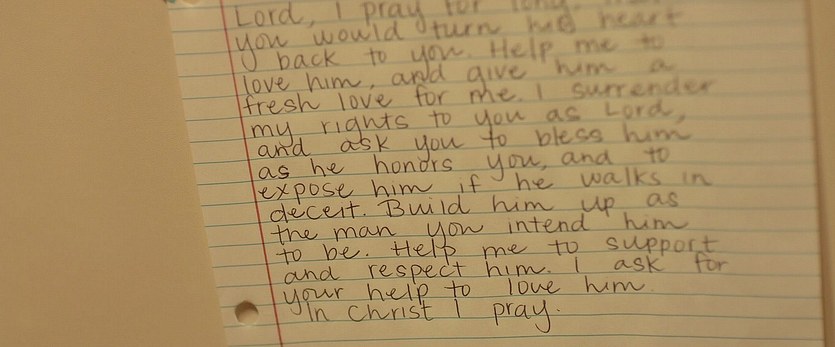 Lord, I pray for
you would turn his heart
back to you. Help me to
love him, and give him a
fresh love for me. I surrender
my rights to you as Lord,
and ask you to bless him
as he honors you, and to
expose him if he walks in
deceit. Build him up as
the man you intend him
to be. Help me to support
and respect him. I ask for
your help to love him.
In Christ I pray.